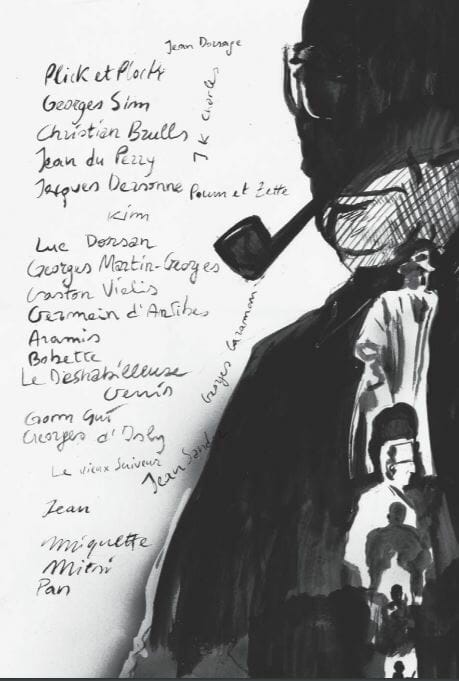 Jean Dorsage
Plick et Plock
Georges Sim
J K Charles
Christian Brulls
Jean du Perry
Jacques Dersonne
Poum et Zette
Kim
Luc Dorsan
Georges Martin-Georges
Gaston Vialis
Germain d'Antibes
Aramis
Bobette
Le Déshabilleuse
Georges Caraman
Gemis
Gom Gut
Georges d'Isly
Jean Sandor
Le vieux Suiveur
Jean
Miquette
Misti
Pan